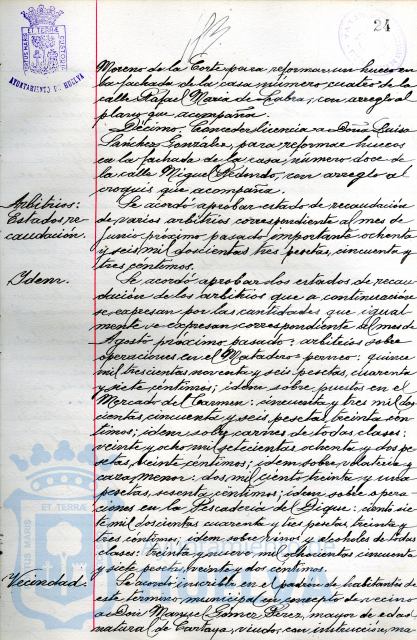 24
AYUNTAMIENTO DE HUELVA
Moreno de la Corte para reformar un hueco en
la fachada de la casa número cuatro de la
calle Rafael María de Labra, con arreglo al
plano que acompaña.
Décimo. Conceder licencia a Doña Luisa
Sánchez González, para reformar huecos
en la fachada de la casa, número doce de
la calle Miguel Redondo, con arreglo al
croquis que acompaña.
Arbitrios:
Estados re-
caudación.
Se acordó aprobar estado de recaudación
de varios arbitrios correspondiente al mes de
Junio próximo pasado importante ochenta
y seis mil doscientas tres pesetas, cincuenta y
tres céntimos.
Idem.
Se acordó aprobar los estados de recau-
dación de los arbitrios que a continuación
se expresan por las cantidades que igual
mente se expresan correspondiente al mes de
Agosto próximo pasado: arbitrios sobre
operaciones en el Matadero perneo: quince
mil trescientas noventa y seis pesetas, cuarenta
y siete céntimos; idem sobre puestos en el
Mercado del Carmen: cincuenta y tres mil dos
cientas, cincuenta y seis pesetas, treinta cén
timos; idem sobre carnes de todas clases:
veinte y ocho mil setecientas ochenta y dos pe
setas, veinte céntimos; idem sobre volatería y
caza menor: dos mil ciento treinta y una
pesetas, sesenta céntimos; idem sobre opera
ciones en la Pescadería del Dique: ciento sie
te mil doscientas cuarenta y tres pesetas, treinta y
tres céntimos; idem sobre vinos y alcoholes de todas
clases: treinta y nueve mil ochocientas cincuenta
y siete pesetas, veinte y dos céntimos.
Vecindad:
Se acordó inscribir en el padrón de habitantes de
este término municipal en concepto de vecino
a Don Manuel Gómez Pérez, mayor de edad
natural de Cartaya, viudo, con instrucción, ma